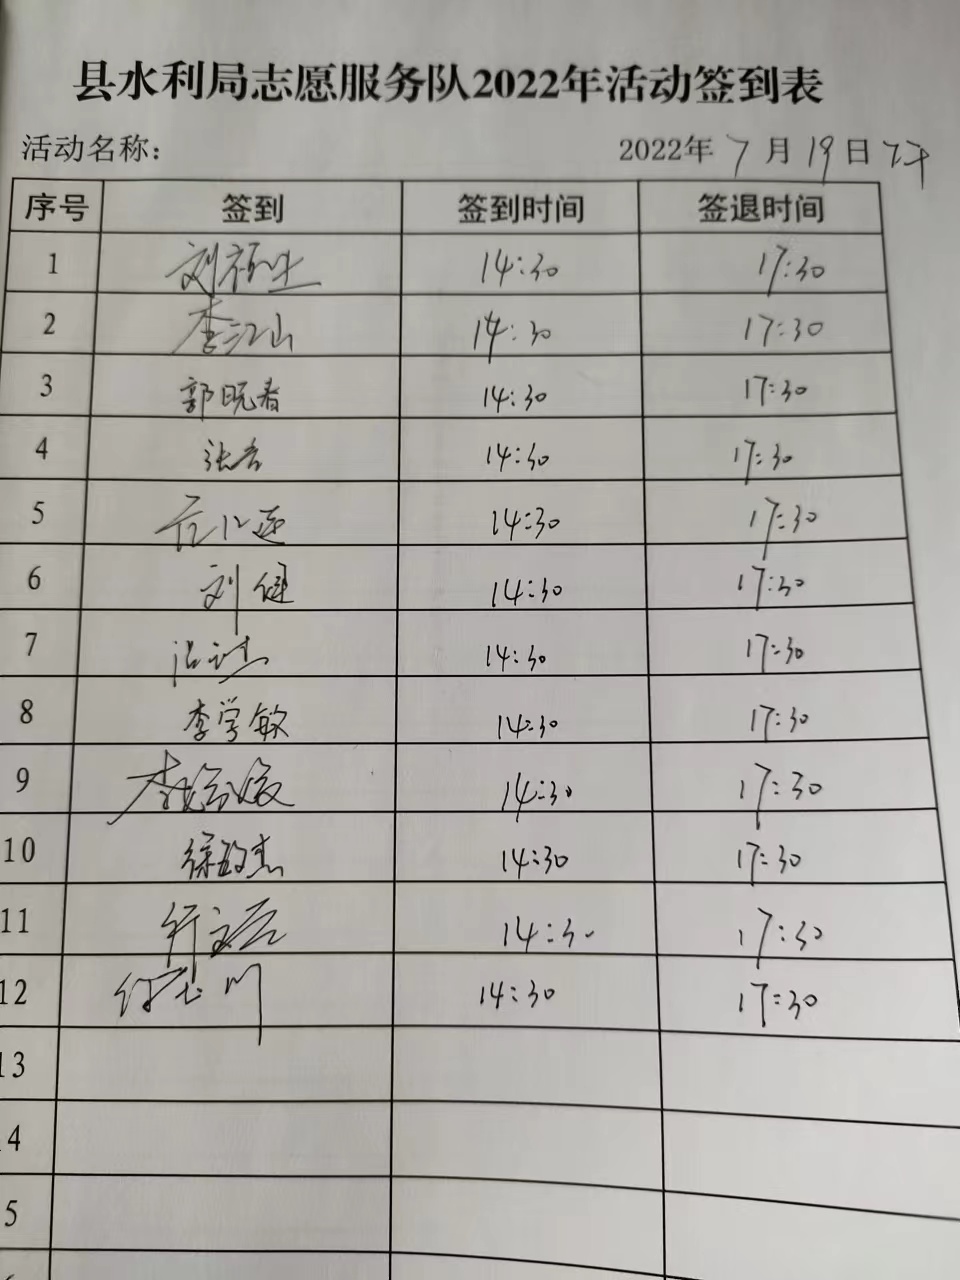 县水利局志愿服务队2022年活动签到表
活动名称： 2022年7月19日下午
序号 签到 签到时间 签退时间
1 14:30 17:30
2 李江山 14:30 17:30
3 郭晓春 14:30 17:30
4 14:30 17:30
5 14:30 17:30
6 刘健 14:30 17:30
7 14:30 17:30
8 李学敏 14:30 17:30
9 14:30 17:30
10 14:30 17:30
11 14:30 17:30
12 14:30 17:30
13
4
5